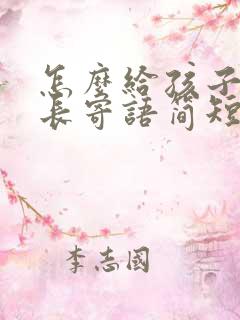 怎麼給孩子
長寄語簡短
李志國